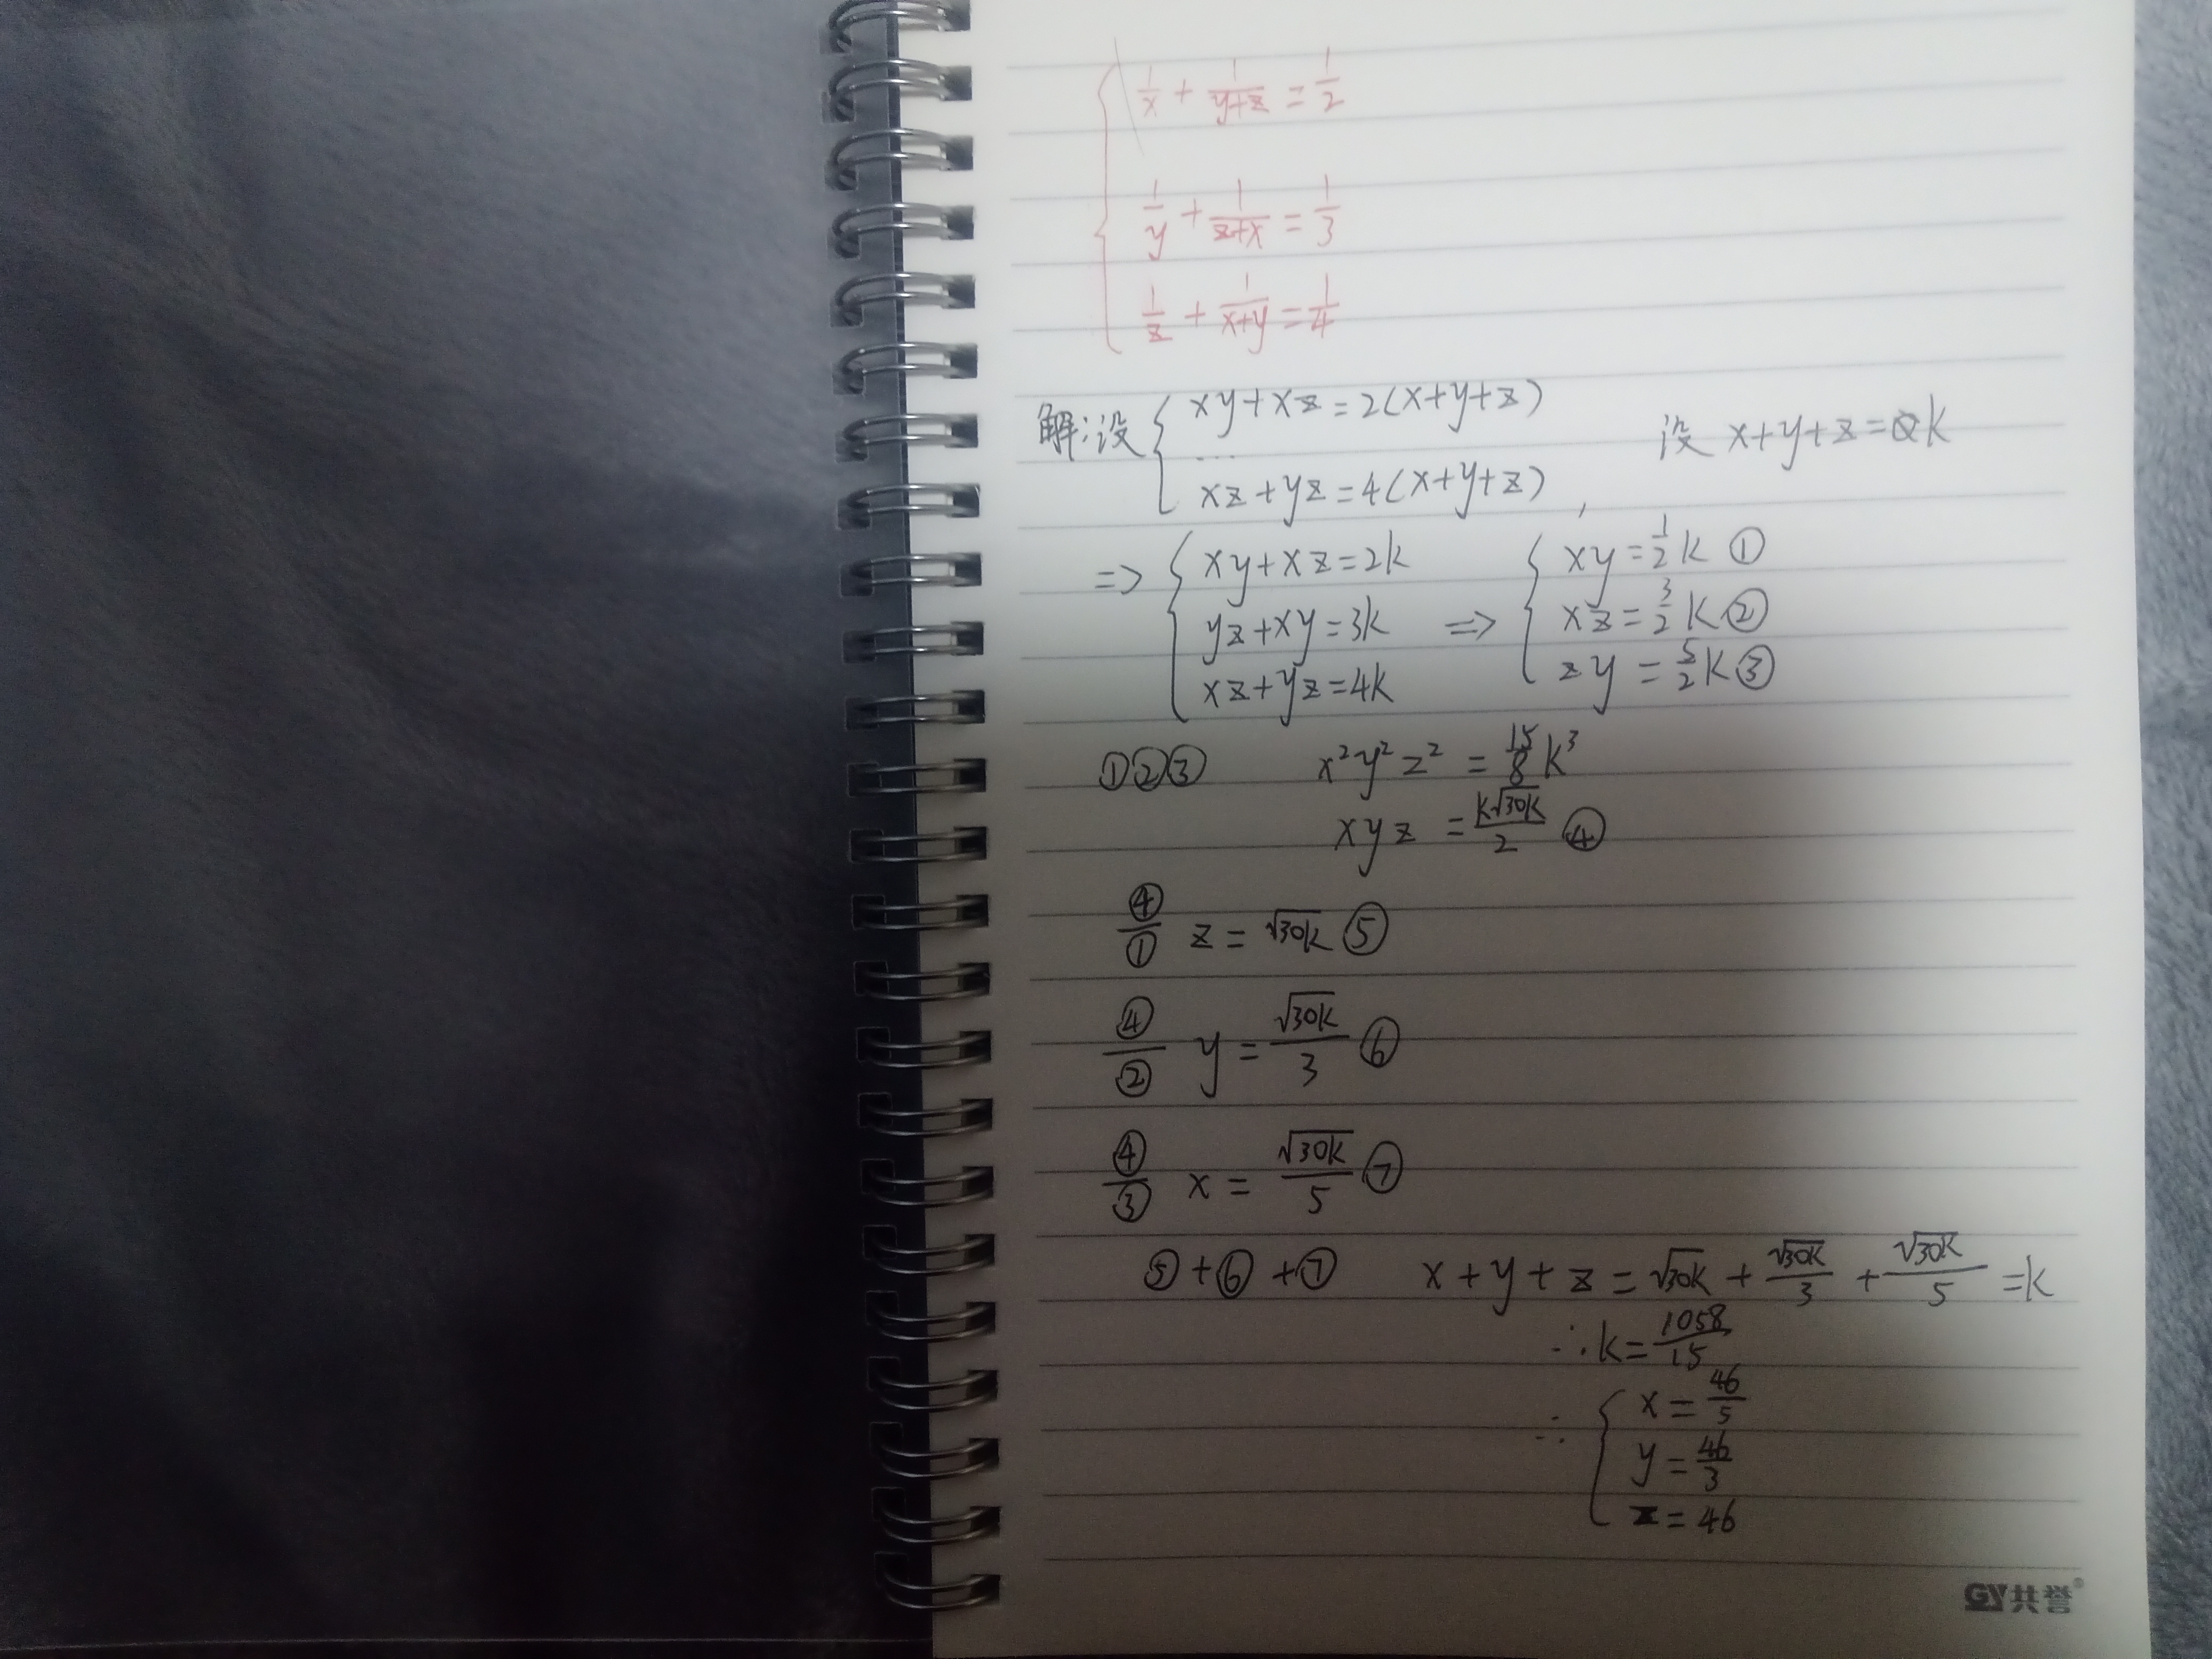 1/x + 1/(y+z) = 1/2
1/y + 1/(z+x) = 1/3
1/z + 1/(x+y) = 1/4
解:设 { xy+xz=2(x+y+z) 设 x+y+z=k
...
xz+yz=4(x+y+z),
=> { xy+xz=2k => { xy=1/2 k ①
yz+xy=3k xz=3/2 k ②
xz+yz=4k zy=5/2 k ③
①②③ x²y²z² = 15/8 k³
xyz = k√30k/2 ④
④/① z = √30k ⑤
④/② y = √30k/3 ⑥
④/③ x = √30k/5 ⑦
⑤+⑥+⑦ x+y+z = √30k + √30k/3 + √30k/5 = k
∴k = 1058/15
∴ { x = 46/5
y = 46/3
z = 46
GY共誉®